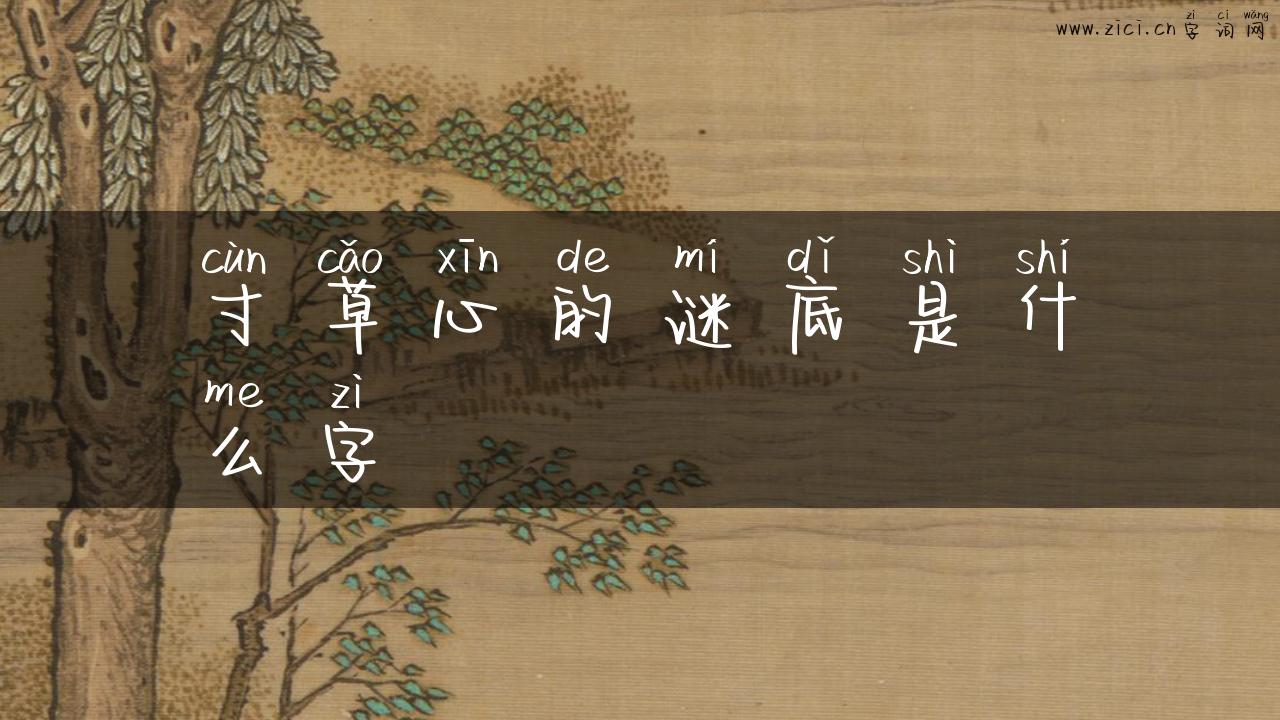 zì cí wǎng
www.zici.cn 字词网
cùn cǎo xīn de mí dǐ shì shí
寸草心的谜底是什
me zì
么字